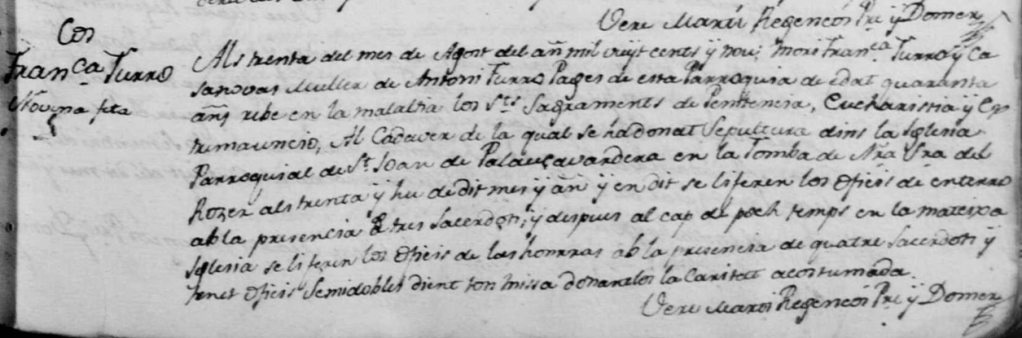 Vere Marti Regencos Pre y Domer
Cos
Franca. Turro
Novena feta
Als trenta del mes de Agost del añ mil vuyt cents y nou: mori Franca. Turro y Ca
sanovas Muller de Antoni Turro Pages de esta Parroquia de edat quaranta
añs, rebe en la malaltia los Sts. Sagraments de Penitencia, Eucharistia y Ex
tremauncio, Al Cadaver de la qual se ha donat Sepultura dins la Iglesia
Parroquial de St. Joan de Palau çavardera en la Tomba de Nra. Sra. del
Rozer als trenta y hu de dit mes y añ y en dit se li feren los Oficis de enterro
ab la presencia de tres Sacerdots, y despues al cap de poch temps en la mateixa
Iglesia se li feren los Oficis de las honrras ab la presencia de quatre Sacerdots y
tenet Oficis Semidobles dient ton missa donantlos la Caritat acostumada.
Vere Marti Regencos Pre. y Domer